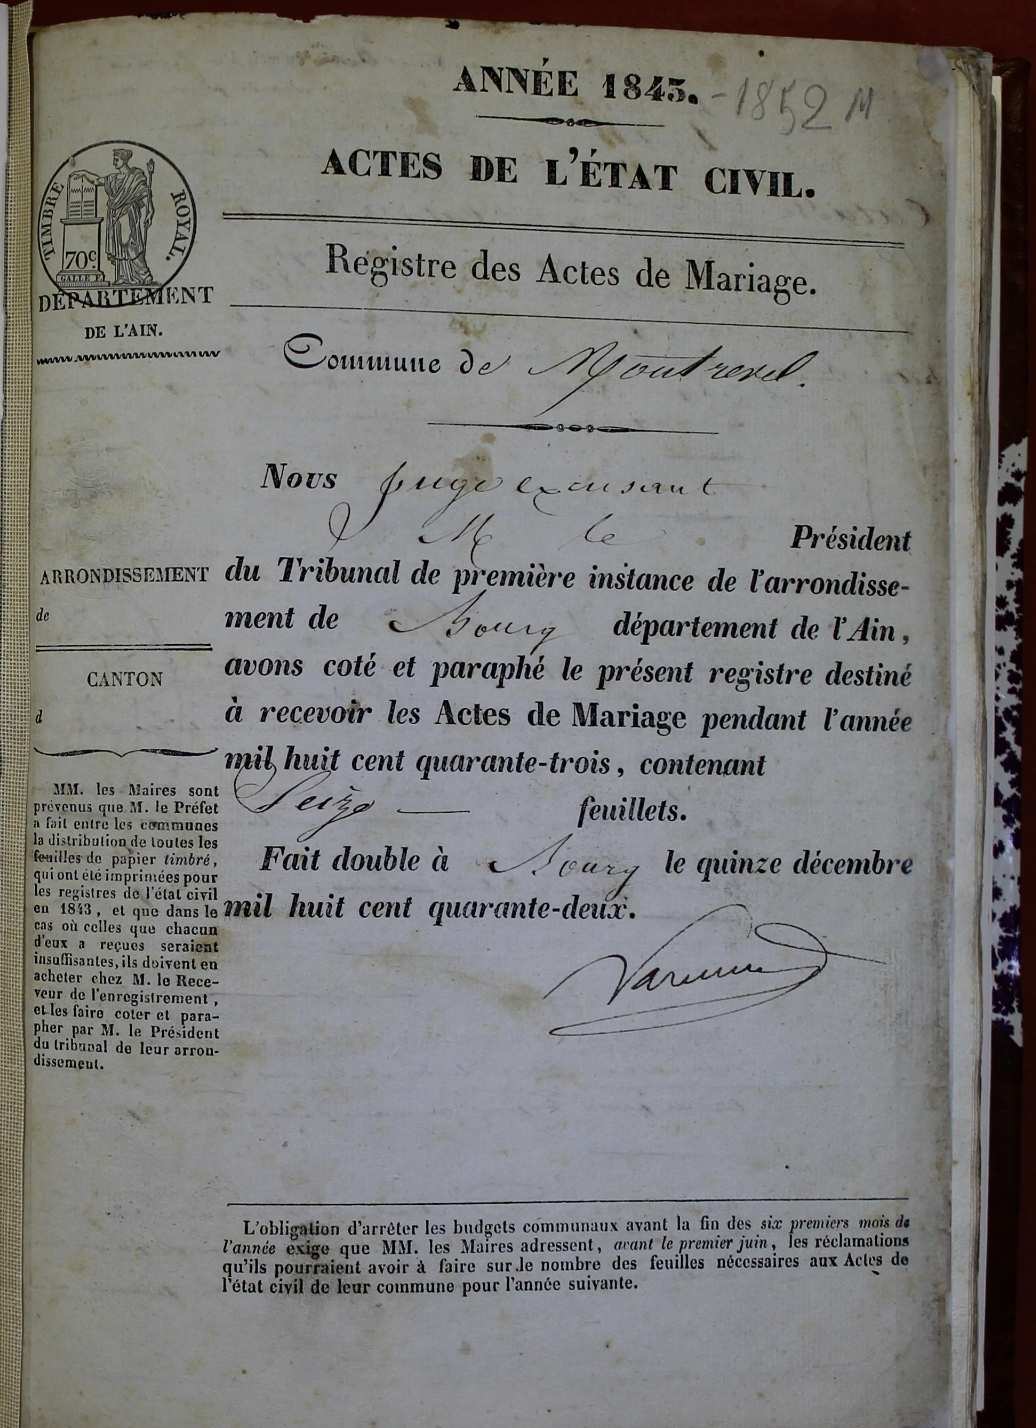 ANNÉE 1843. - 1852 M
ACTES DE L'ÉTAT CIVIL.
TIMBRE ROYAL.
70c
DÉPARTEMENT
DE L'AIN.
Registre des Actes de Mariage.
Commune de Montrevel.
Nous juge
M le Président
du Tribunal de première instance de l'arrondisse-
ment de Bourg département de l'Ain,
avons coté et paraphé le présent registre destiné
à recevoir les Actes de Mariage pendant l'année
mil huit cent quarante-trois, contenant
Seize feuillets.
Fait double à Bourg le quinze décembre
mil huit cent quarante-deux.
ARRONDISSEMENT
de
CANTON
d
MM. les Maires sont
prévenus que M. le Préfet
a fait entre les communes
la distribution de toutes les
feuilles de papier timbré,
qui ont été imprimées pour
les registres de l'état civil
en 1843, et que dans le
cas où celles que chacun
d'eux a reçues seraient
insuffisantes, ils doivent en
acheter chez M. le Rece-
veur de l'enregistrement,
et les faire coter et para-
pher par M. le Président
du tribunal de leur arron-
dissement.
L'obligation d'arrêter les budgets communaux avant la fin des six premiers mois de
l'année exige que MM. les Maires adressent, avant le premier juin, les réclamations
qu'ils pourraient avoir à faire sur le nombre des feuilles nécessaires aux Actes de
l'état civil de leur commune pour l'année suivante.